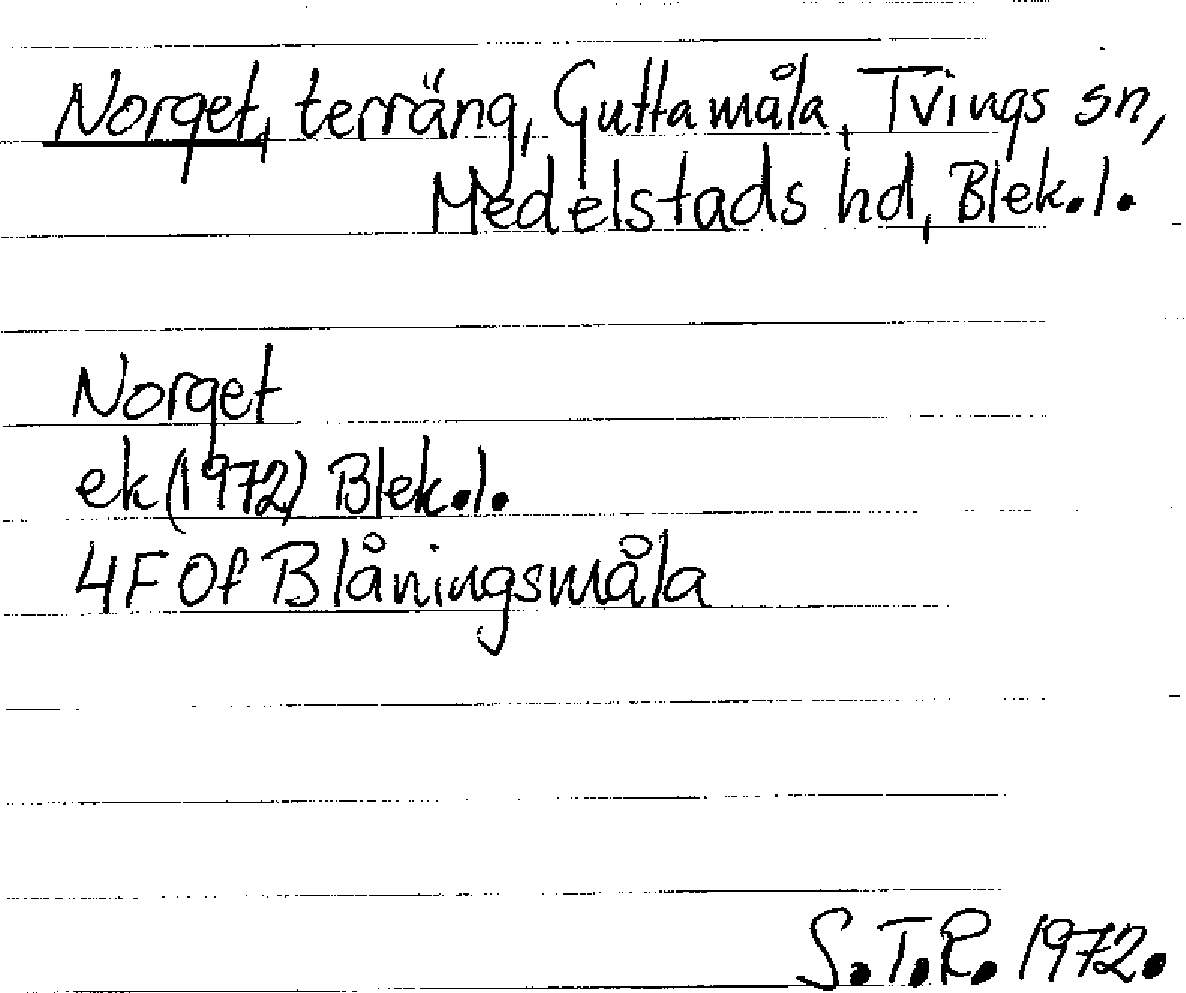 Norget, terräng, Guttamåla, Tvings sn,
Medelstads hd, Blek.l.
Norget
ek (1972) Blek.l.
4F 0f Blåningsmåla
S.T.R. 1972.